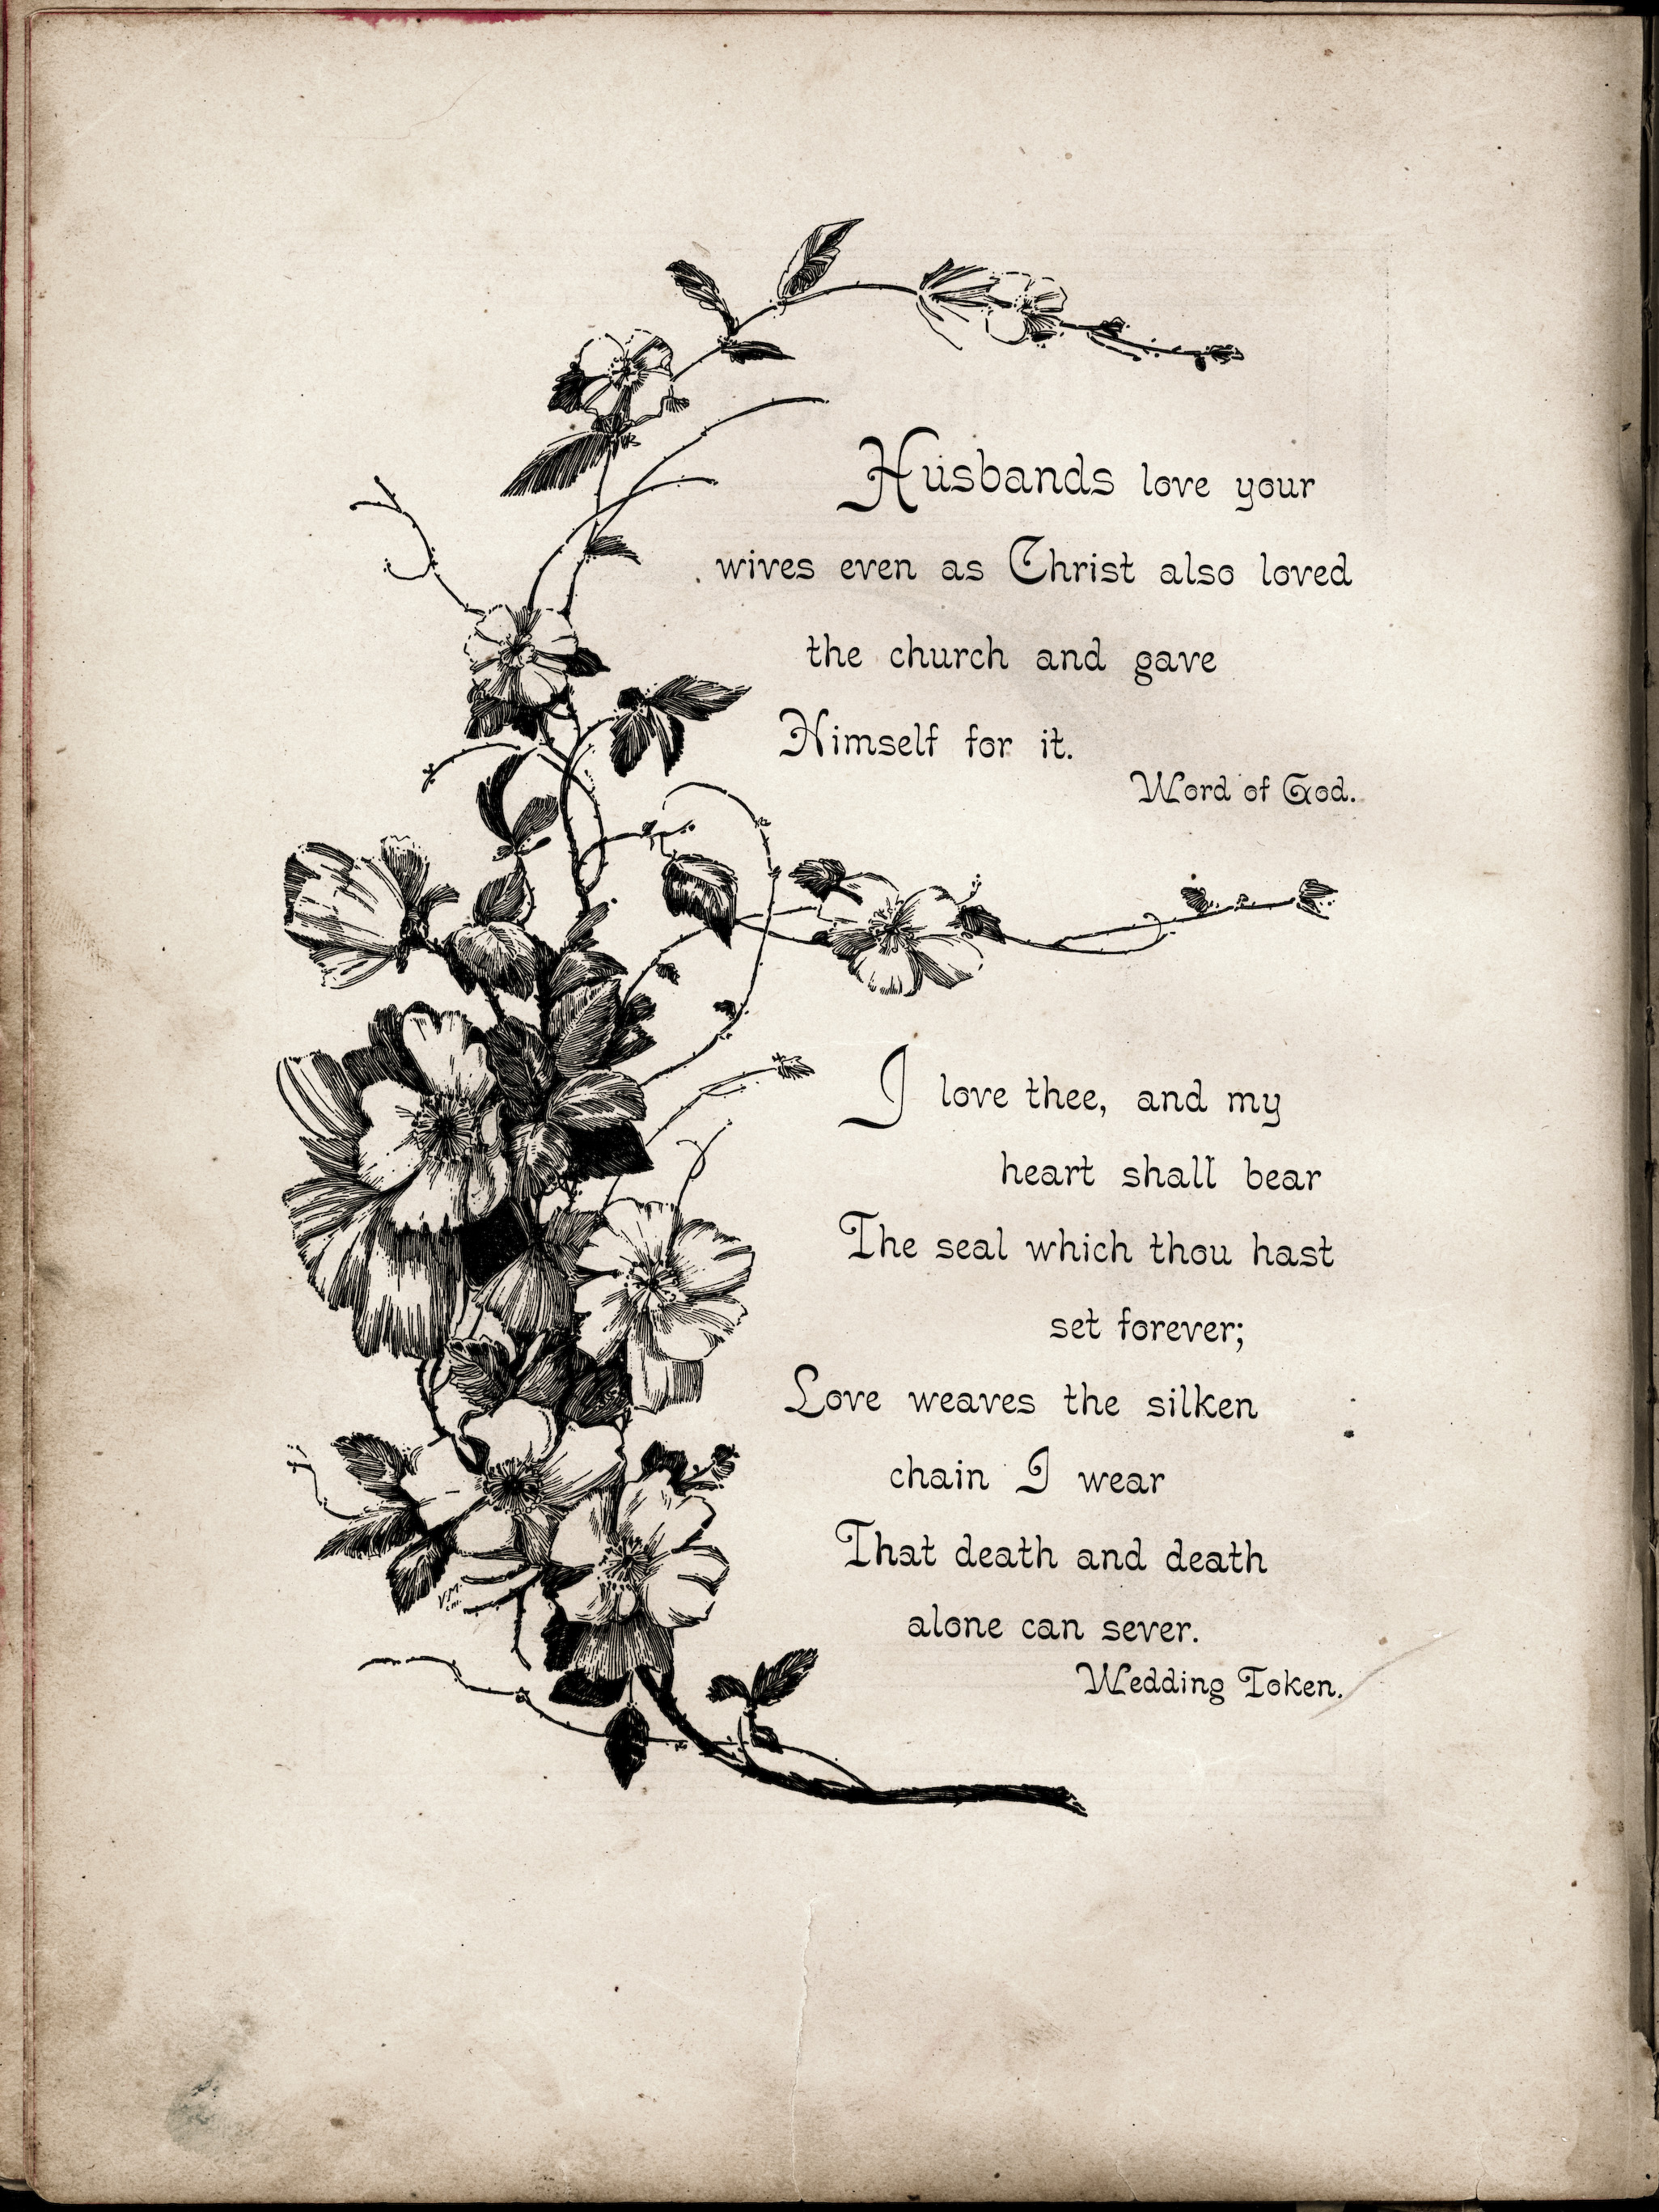 Husbands love your
wives even as Christ also loved
the church and gave
Himself for it.
Word of God.
I love thee, and my
heart shall bear
The seal which thou hast
set forever;
Love weaves the silken
chain I wear
That death and death
alone can sever.
Wedding Token.